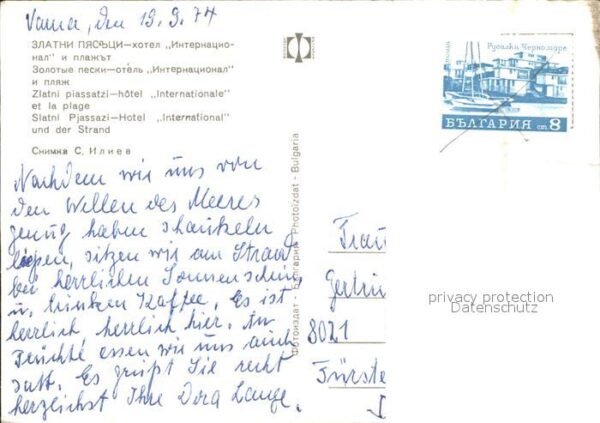 Varna, den 19.9.74
ЗЛАТНИ ПЯСЪЦИ—хотел „Интернацио-
нал" и плажът
Золотые пески—отель „Интернационал"
и пляж
Zlatni piassatzi—hôtel „Internationale"
et la plage
Slatni Pjassazi—Hotel „International"
und der Strand
Снимка С. Илиев
Nachdem wir uns von
den Wellen des Meeres
genug haben schaukeln
lassen, sitzen wir am Strand
bei herrlichem Sonnenschein
u. trinken Kaffee. Es ist
herrlich herrlich hier. An
Früchte essen wir uns auch
satt. Es grüßt Sie recht
herzlichst Ihre Dora Lange.
Фотоиздат - България Photoizdat - Bulgaria
Русалки Черноморе
БЪЛГАРИЯ ст 8
Frau
8021
Fürste
privacy protection
Datenschutz